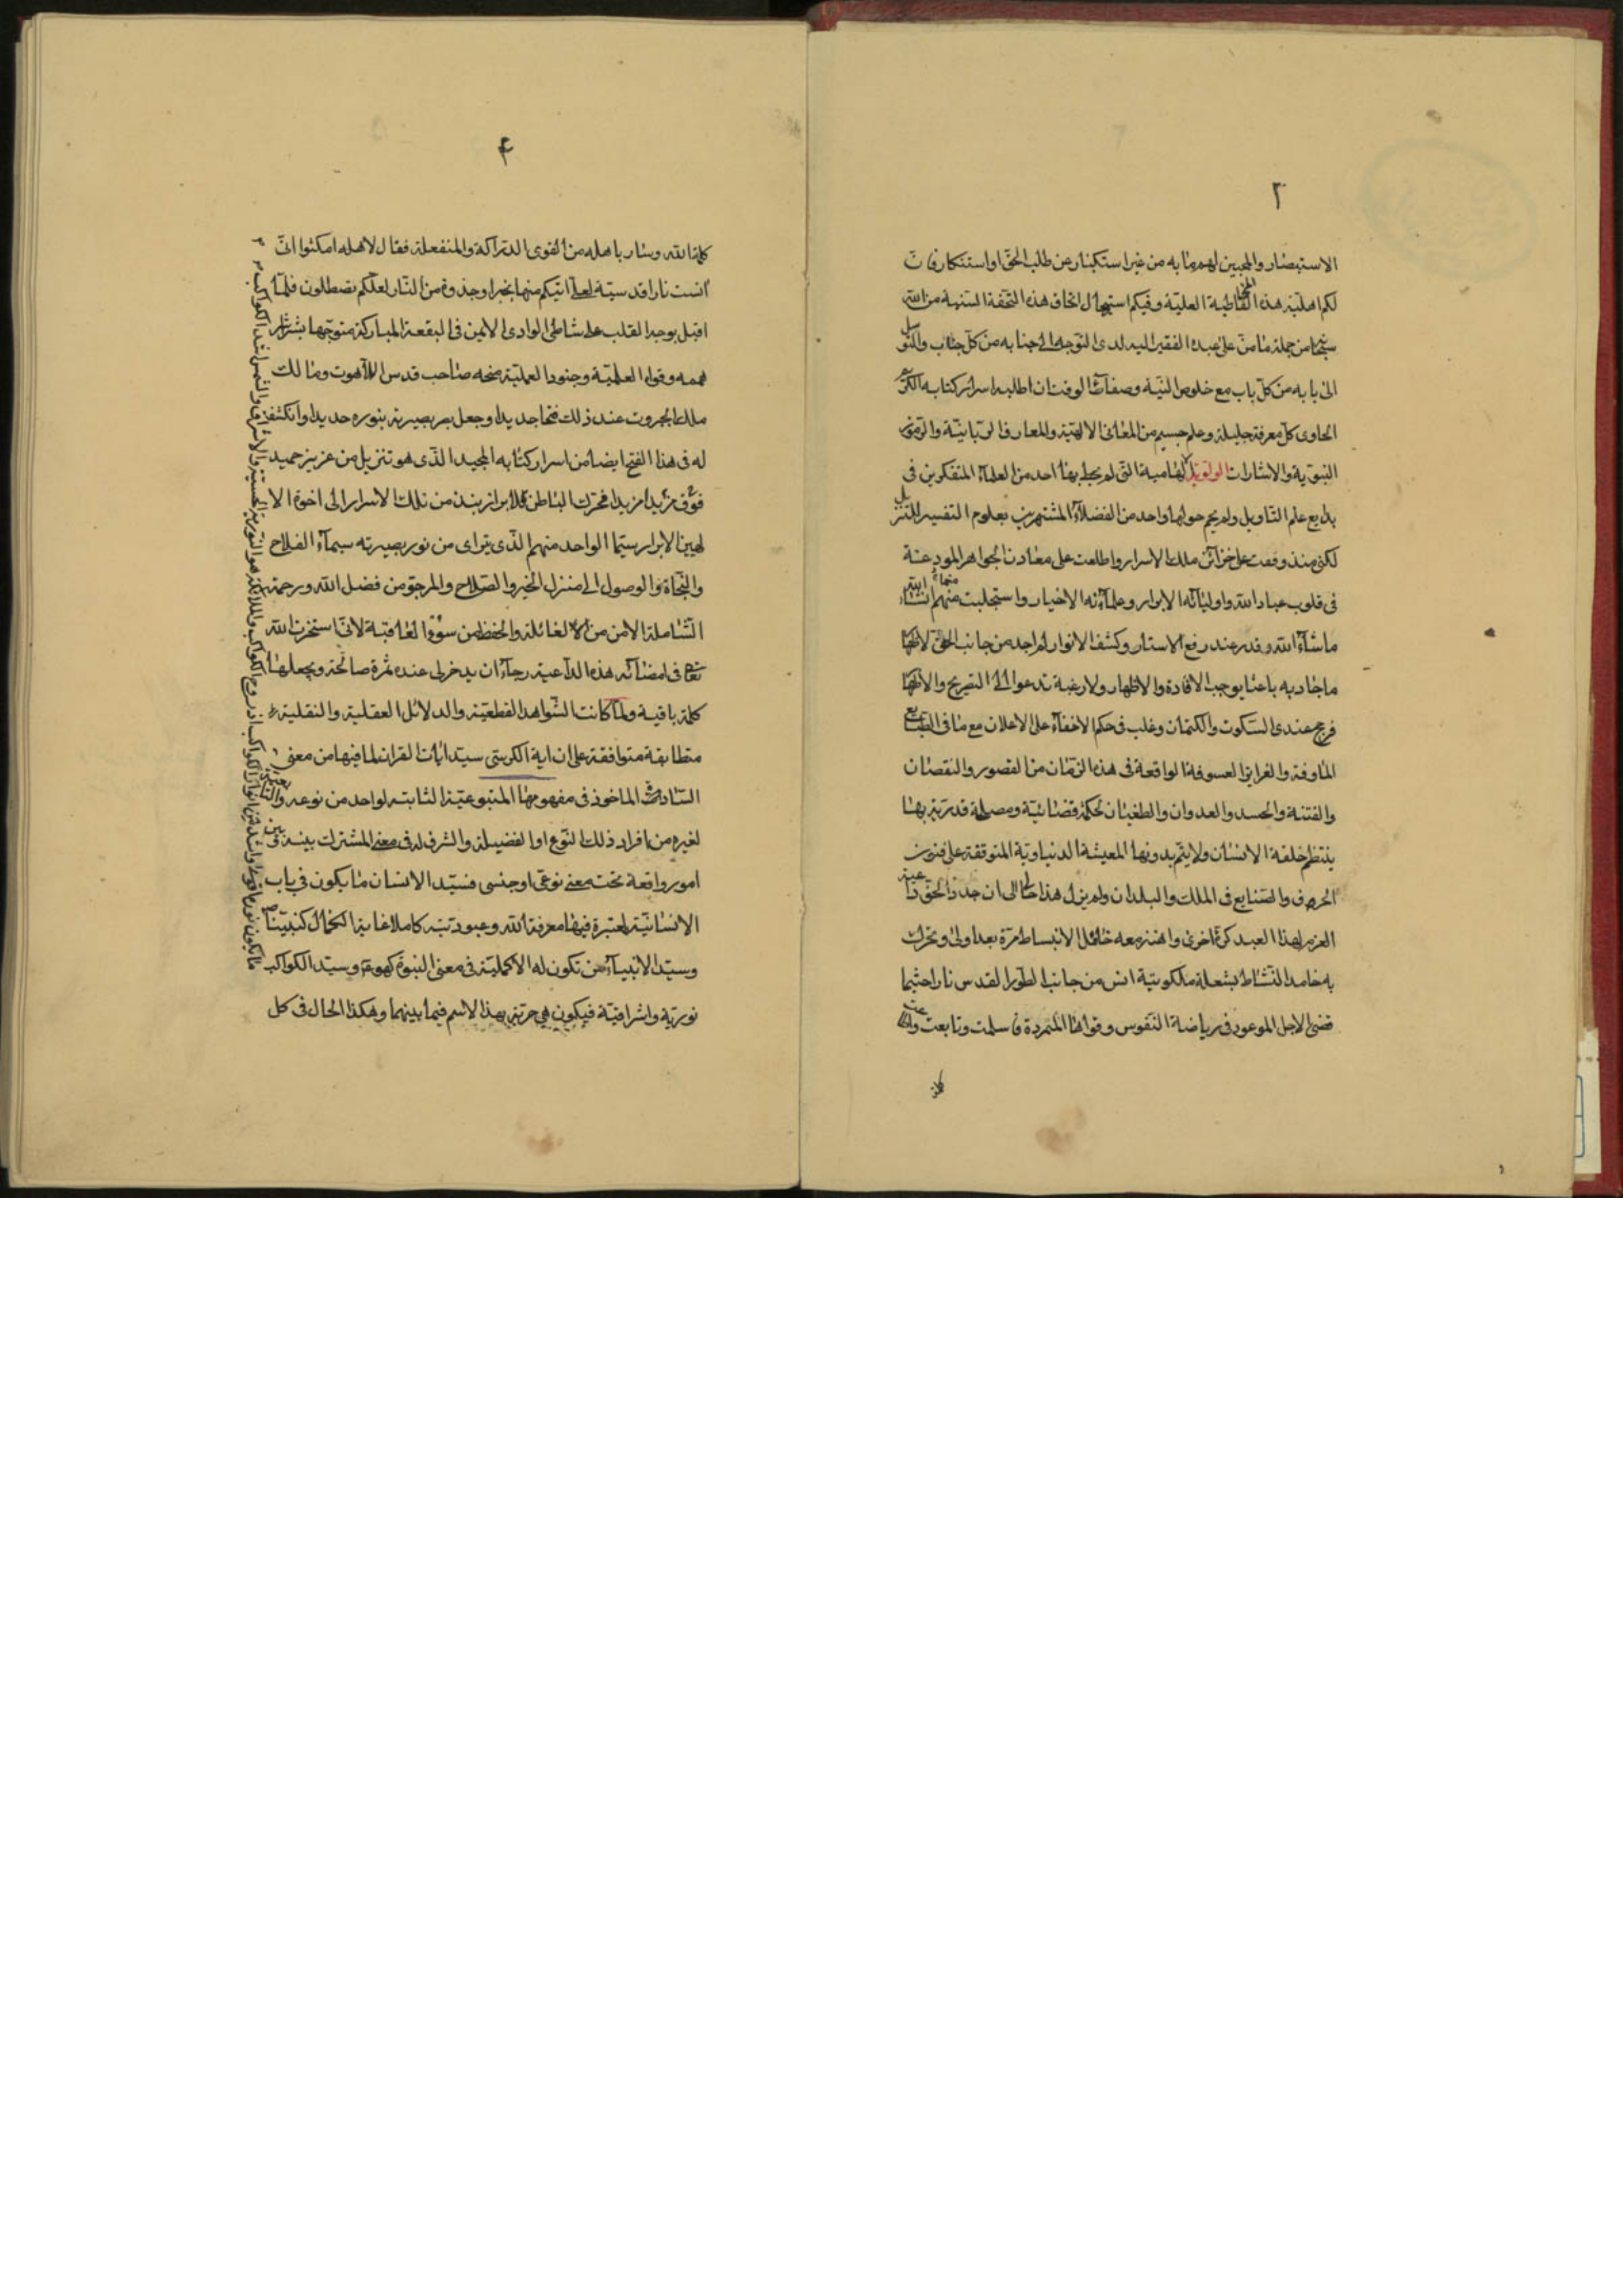 ٢
الاستبصار والمجيبين لهم ما به من غير استكبار عن طلب الحق او استنكار فان
لكم اهلية هذه المخاطبة العلية وفيكم استيهال اتحاف هذه التحفة السنية من الله
من جملة ما من على عبده الفقير اليه لدى التوجه الى جنابه من كل جناب والتوسل
الى بابه من كل باب مع خلوص النية وصفاء الوقت ان اطلبه اسرار كتابه الكريم
الحاوى كل معرفة جليلة وعلم جسيم من المعانى الالهية والمعارف الربانية والرموز
النبوية والاشارات الولوية الهامية التى لم يحط بها احد من العلماء المتفكرين فى
بدايع علم التاويل ولم يحم حولها واحد من الفضلاء المشتهرين بعلوم التفسير للتنزيل
لكنى منذ وقفت على خزائن ملك الاسرار واطلعت على معادن الجواهر المودعة
فى قلوب عباد الله واوليائه الابرار وعلمائه الاخيار واستجلبت منهم
ما شاء الله وقدر عند رفع الاستار وكشف الانوار لم اجد من جانب الحق لاظهار
ما جاد به باعثا يوجب الافادة والاظهار ولا رغبة تدعو الى التصريح والاظهار
فرجح عندى السكوت والكتمان وغلب فى حكم الاخفاء على الاعلان مع ما فى الطبايع
الماوفة والغرايز العسوفة الواقعة فى هذه الزمان من القصور والنقصان
والفتنة والحسد والعدوان والطغيان لحكمة قضائية ومصلحة قدرية بها
ينتظم خلقة الانسان ولا يتم بدونها المعيشة الدنياوية المتوقفة على فنون
الحرف والصنايع فى الملك والبلدان ولم يزل هذا حالى الى ان جدد الحق داعية
العزم لهذا العبد كرة اخرى واهتز معه خامل الانبساط مرة بعد اولى وتحرك
به خامد النشاط بشعلة ملكوتية انس من جانب الطور القدس نارا حيثما
قضى الاجل الموعود فى رياضة النفوس وقواها المتمردة فاسلمت وتابعت واطاعت
٤
كلمة الله وسار باهله من القوى الدراكة والمنفعلة فقال لاهله امكثوا انى
انست نارا قدسية لعلى اتيكم منها بخبر او جذوة من النار لعلكم تصطلون فلما
اقبل بوجه القلب على شاطئ الوادى الايمن فى البقعة المباركة متوجها بشراشر
هممه وقواه العلمية وجنوده العملية منحه صاحب قدس اللاهوت ومالك
ملك الجبروت عند ذلك فتحا جديدا وجعل بصر بصيرته بنوره حديدا وانكشف
له فى هذا الفتح ايضا من اسرار كتابه المجيد الذى هو تنزيل من عزيز حميد
فوق مزيدا فتحرك الباطن لابراز نبذ من تلك الاسرار الى اخوة الا
لهيين الابرار سيما الواحد منهم الذى يتراى من نور بصيرته سيماء الفلاح
والنجاة والوصول الى منزل الخير والصلاح والمرجو من فضل الله ورحمته
الشاملة الامن من الغائلة والحفظ من سوء العاقبة لانى استخرت الله
تعالى فى امضائه هذه الداعية رجاء ان يدخر لى عنده ثمرة صالحة ويجعلها
كلمة باقية ولما كانت الشواهد القطعية والدلائل العقلية والنقلية
متطابقة متوافقة على ان اية الكرسى سيد ايات القران لما فيها من معنى
السيادة الماخوذ فى مفهومها المتبوعية الثابته لواحد من نوعه والتابعية
لغيره من افراد ذلك النوع او الفضيلة والشرف له فى معنى المشترك بينه وبين
امور واقعة تحت معنى نوعى او جنسى فسيد الانسان ما يكون فى باب
الانسانية المعتبرة فيها معرفة الله وعبوديته كاملا غاية الكمال كنبينا ص
وسيد الانبياء من تكون له الاكملية فى معنى النبوة كهو وسيد الكواكب
نورية واشراقية فيكون هى حرية بهذا الاسم فيما بينهما وهكذا الحال فى كل